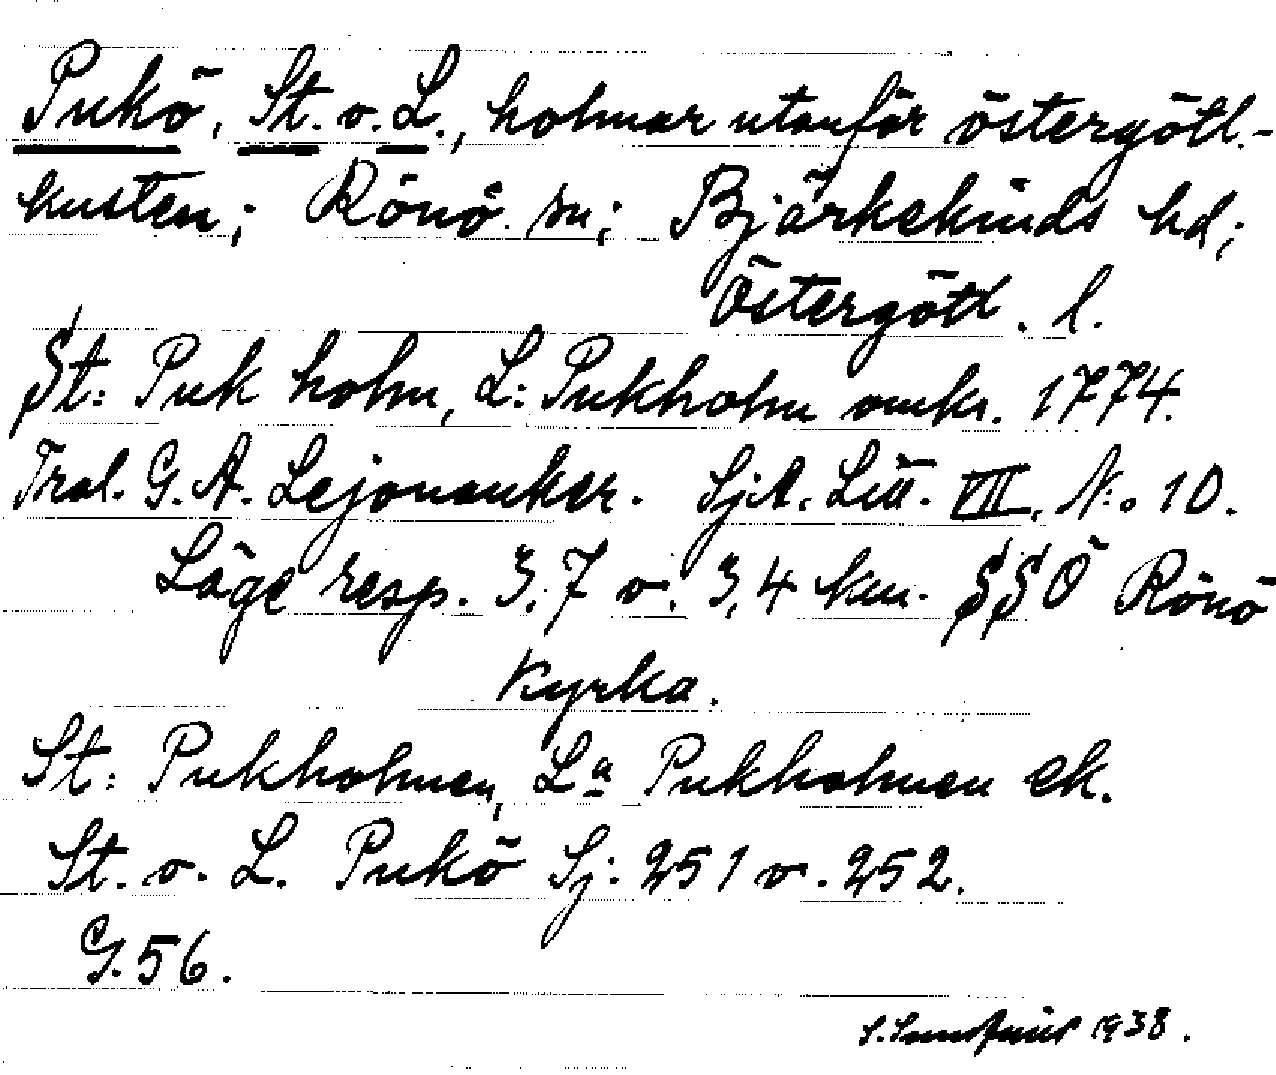 Pukö, St. o. L., holmar utanför östergötl.-
kusten; Rönö sn; Bjärkekinds hd;
Östergötl. l.
St: Puk holm, L: Pukholm omkr. 1774.
Tral. G. A. Lejonanker. SjA. Litt. VIII. N:o 10.
Läge resp. 3,7 o. 3,4 km. SSÖ Rönö
kyrka.
St: Pukholmen, La Pukholmen ek.
St. o. L. Pukö Sj: 251 o. 252.
G. 56.
1938.